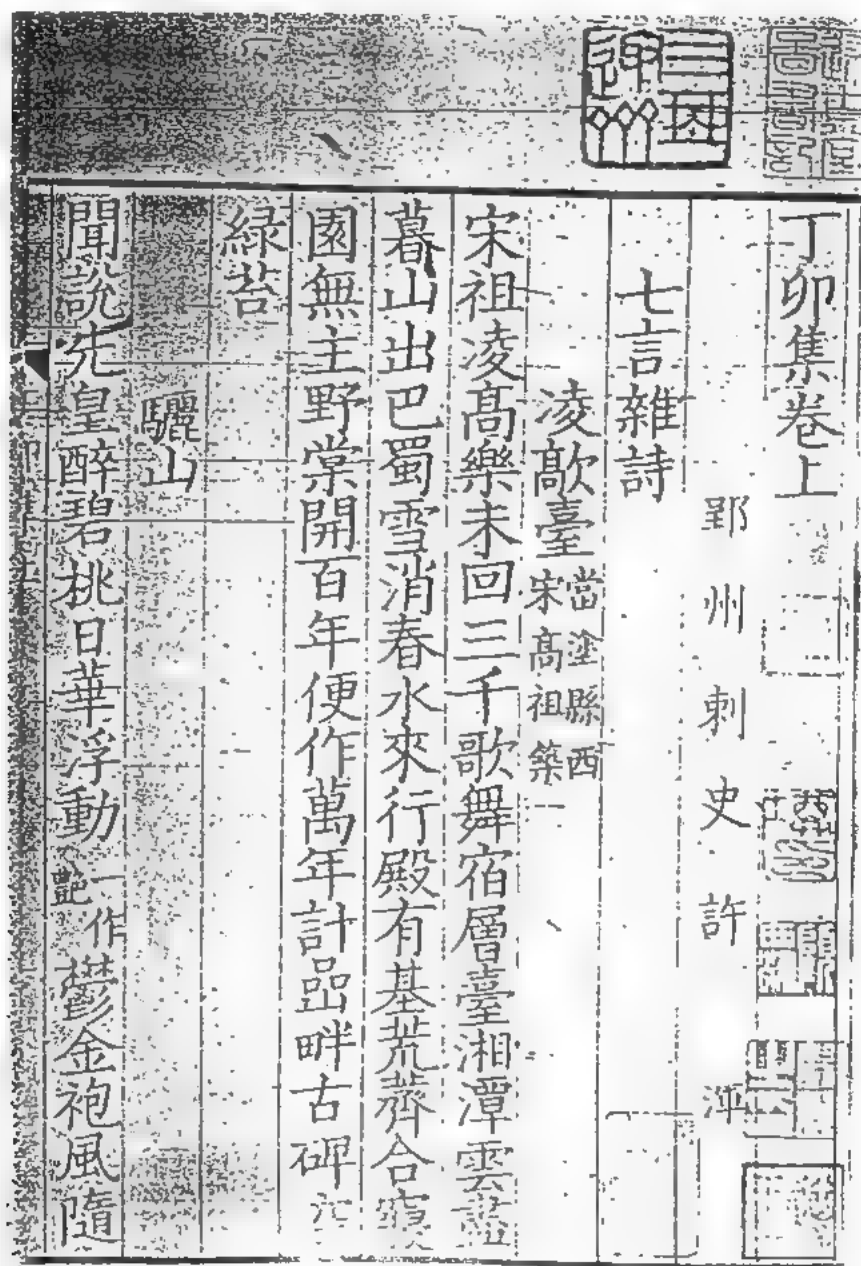 丁卯集卷上
郢州刺史許渾
七言雜詩
凌歊臺當塗縣西宋髙祖築
宋祖凌髙樂未回三千歌舞宿層臺湘潭雲盡
暮山出巴蜀雪消春水來行殿有基荒薺合寢
園無主野棠開百年便作萬年計嵒畔古碑
緑苔
驪山
聞說先皇醉碧桃日華浮動一作艷鬱金袍風隨